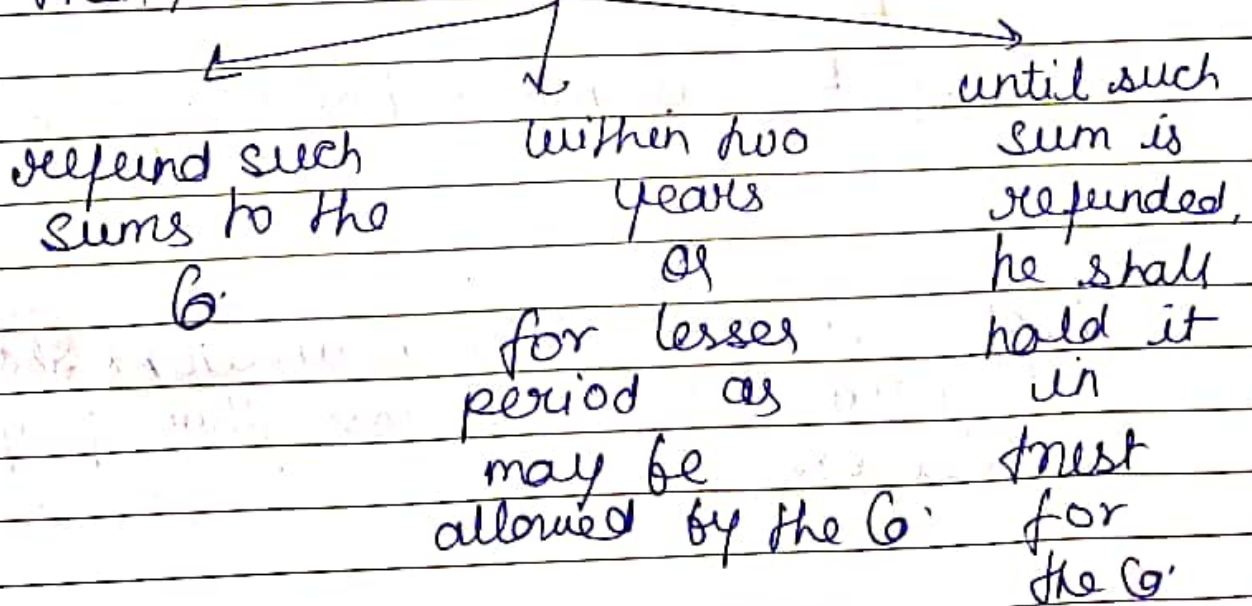 refund such
sums to the
Co.
within two
years
or
for lesser
period as
may be
allowed by the Co.
until such
sum is
refunded,
he shall
hold it
in
trust
for
the Co.